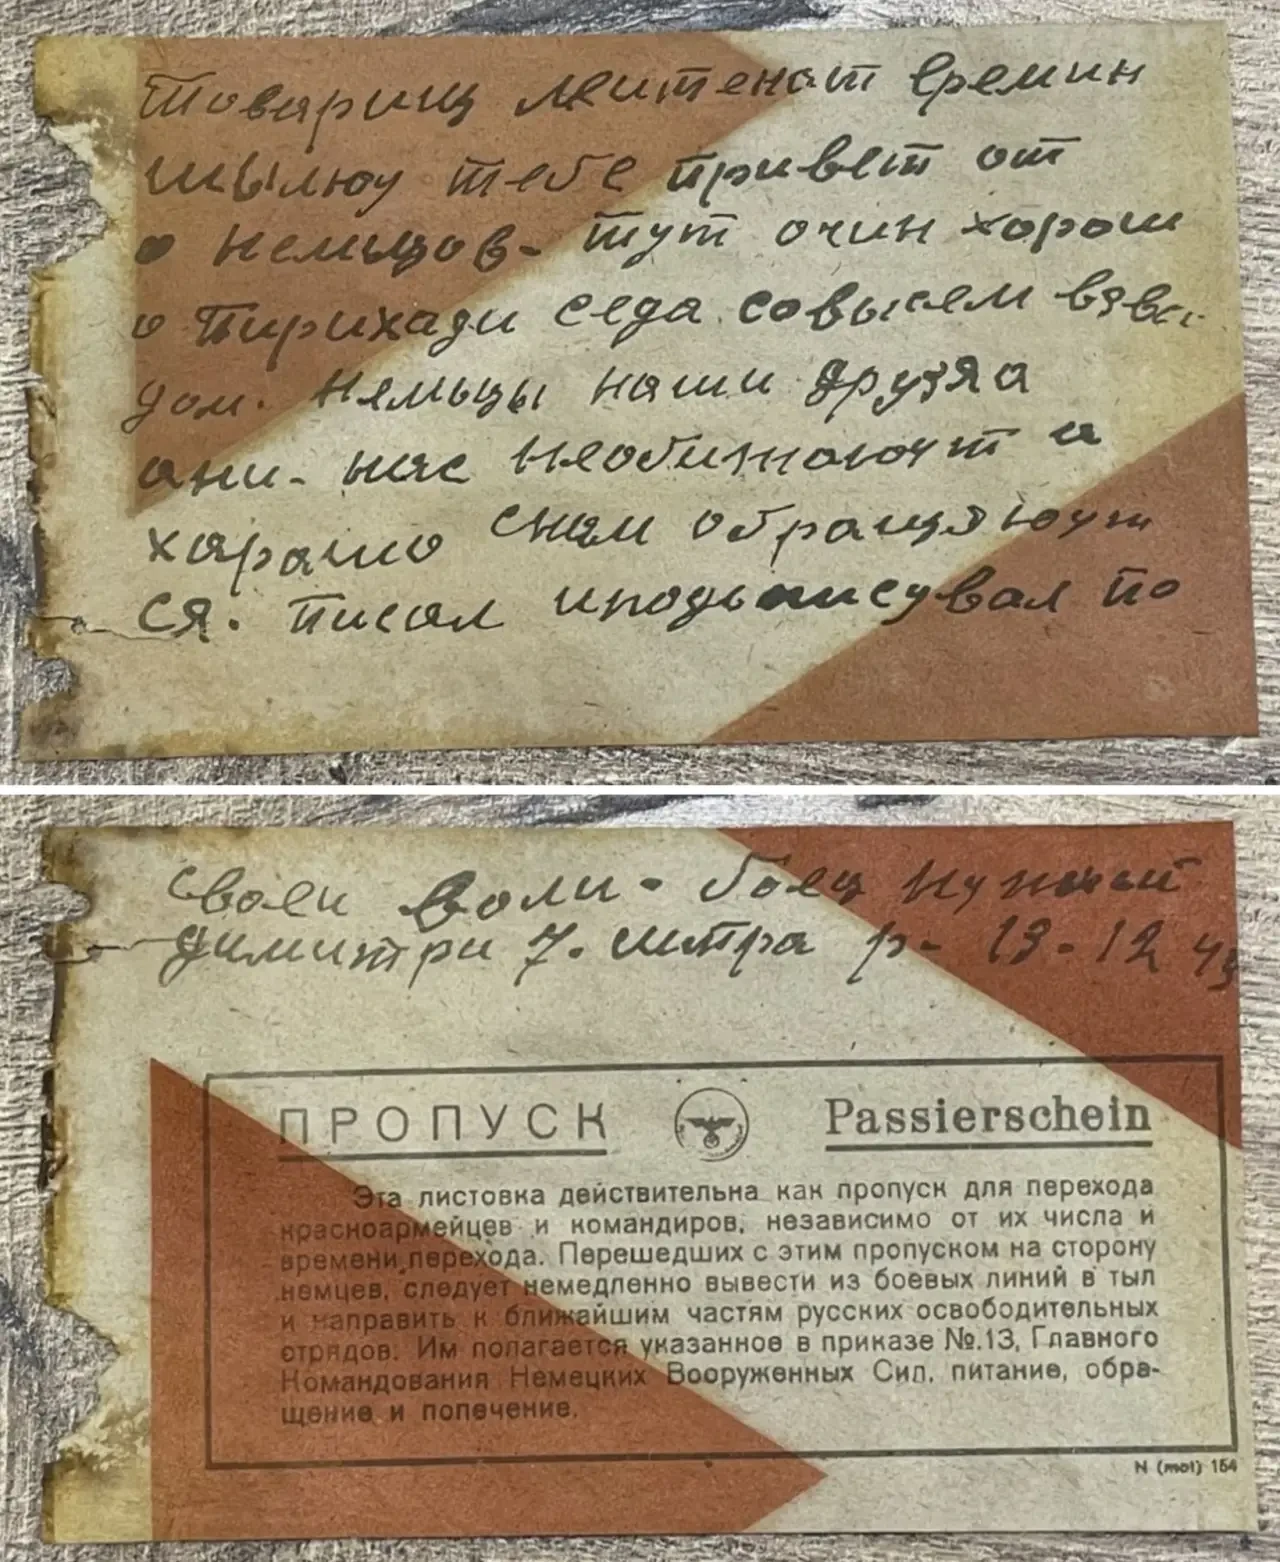 Товарищ лейтенат Еремин
шылюу тебе привет от
немыцов- тут очин харош
о Пирихади седа совысем взво
дом. Нямыцы наши друзяа
ани- нас необижаюут а
харашо снам обращяюут
ся. писал иподьписувал по
своеи воли- боец
Димитри 7. штра р- 13-12 43
ПРОПУСК Passierschein
Эта листовка действительна как пропуск для перехода
красноармейцев и командиров, независимо от их числа и
времени перехода. Перешедших с этим пропуском на сторону
немцев, следует немедленно вывести из боевых линий в тыл
и направить к ближайшим частям русских освободительных
отрядов. Им полагается указанное в приказе №.13, Главного
Командования Немецких Вооруженных Сил, питание, обра-
щение и попечение.
N (mot) 154